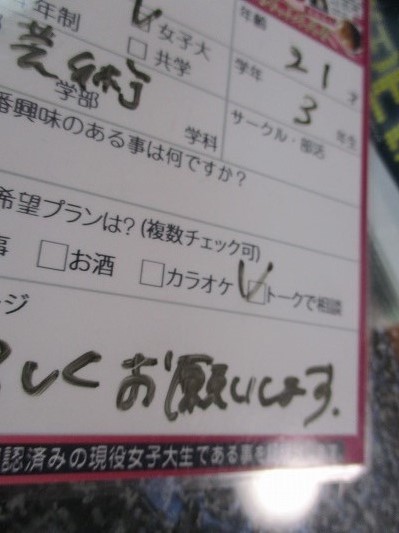 年制
女子大
共学
年齢
21才
芸術
学部
学科
学年
3年生
サークル・部活
番興味のある事は何ですか?
希望プランは?(複数チェック可)
事
お酒
カラオケ
トークで相談
ージ
しくお願いします.
認済みの現役女子大生である事を